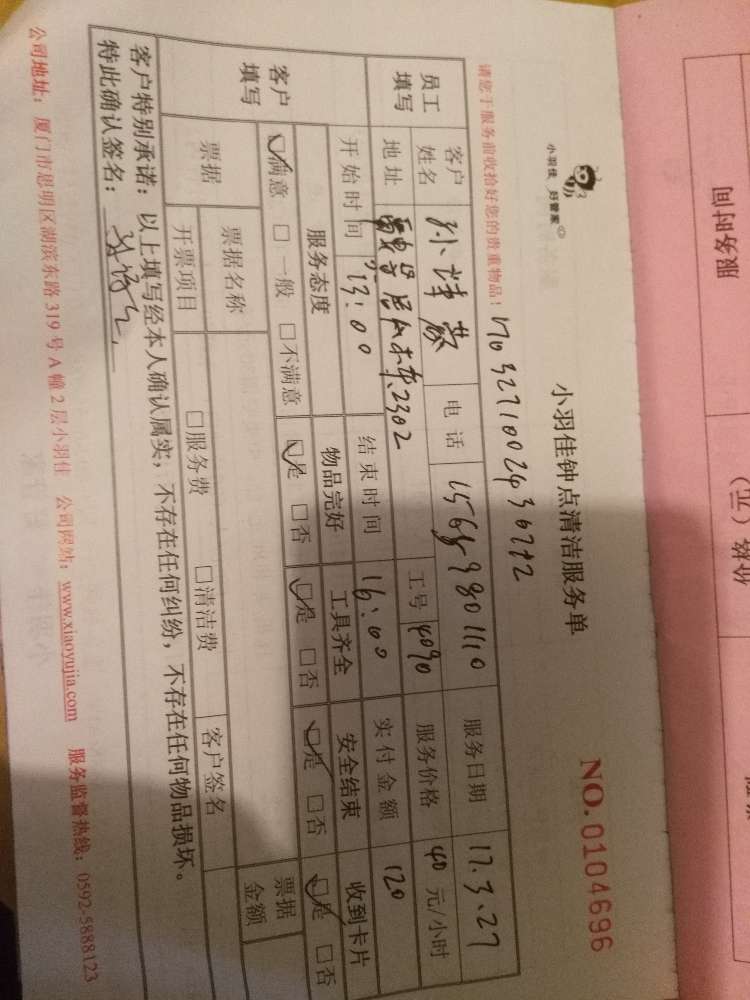 小羽佳 好管家
小羽佳钟点清洁服务单
NO.0104696
请您于服务前收拾好您的贵重物品！
员工填写 客户姓名 电话 15659801110 服务日期 17.3.27
地址 2302 工号 4090 服务价格 40 元/小时
开始时间 13:00 结束时间 16:00 实付金额 120
客户填写 服务态度 物品完好 工具齐全 安全结束 收到卡片
☑满意 □一般 □不满意 ☑是 □否 ☑是 □否 ☑是 □否 ☑是 □否
票据 票据名称 票据金额
开票项目 □服务费 □清洁费 客户签名
客户特别承诺：以上填写经本人确认属实，不存在任何纠纷，不存在任何物品损坏。
特此确认签名：
公司地址：厦门市思明区湖滨东路 319 号 A 幢 2 层小羽佳 公司网站：www.xiaoyujia.com 服务监督热线：0592-5888123
服务时间
价格（元）